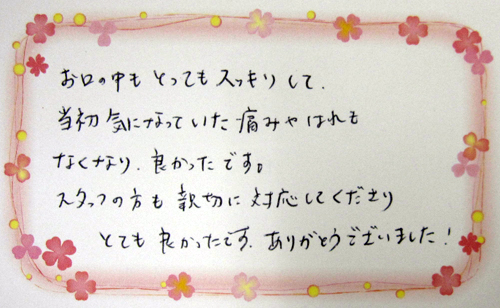 お口の中もとってもスッキリして、
当初気になっていた痛みやはれも
なくなり、良かったです。
スタッフの方も親切に対応してくださり
とても良かったです。ありがとうございました!